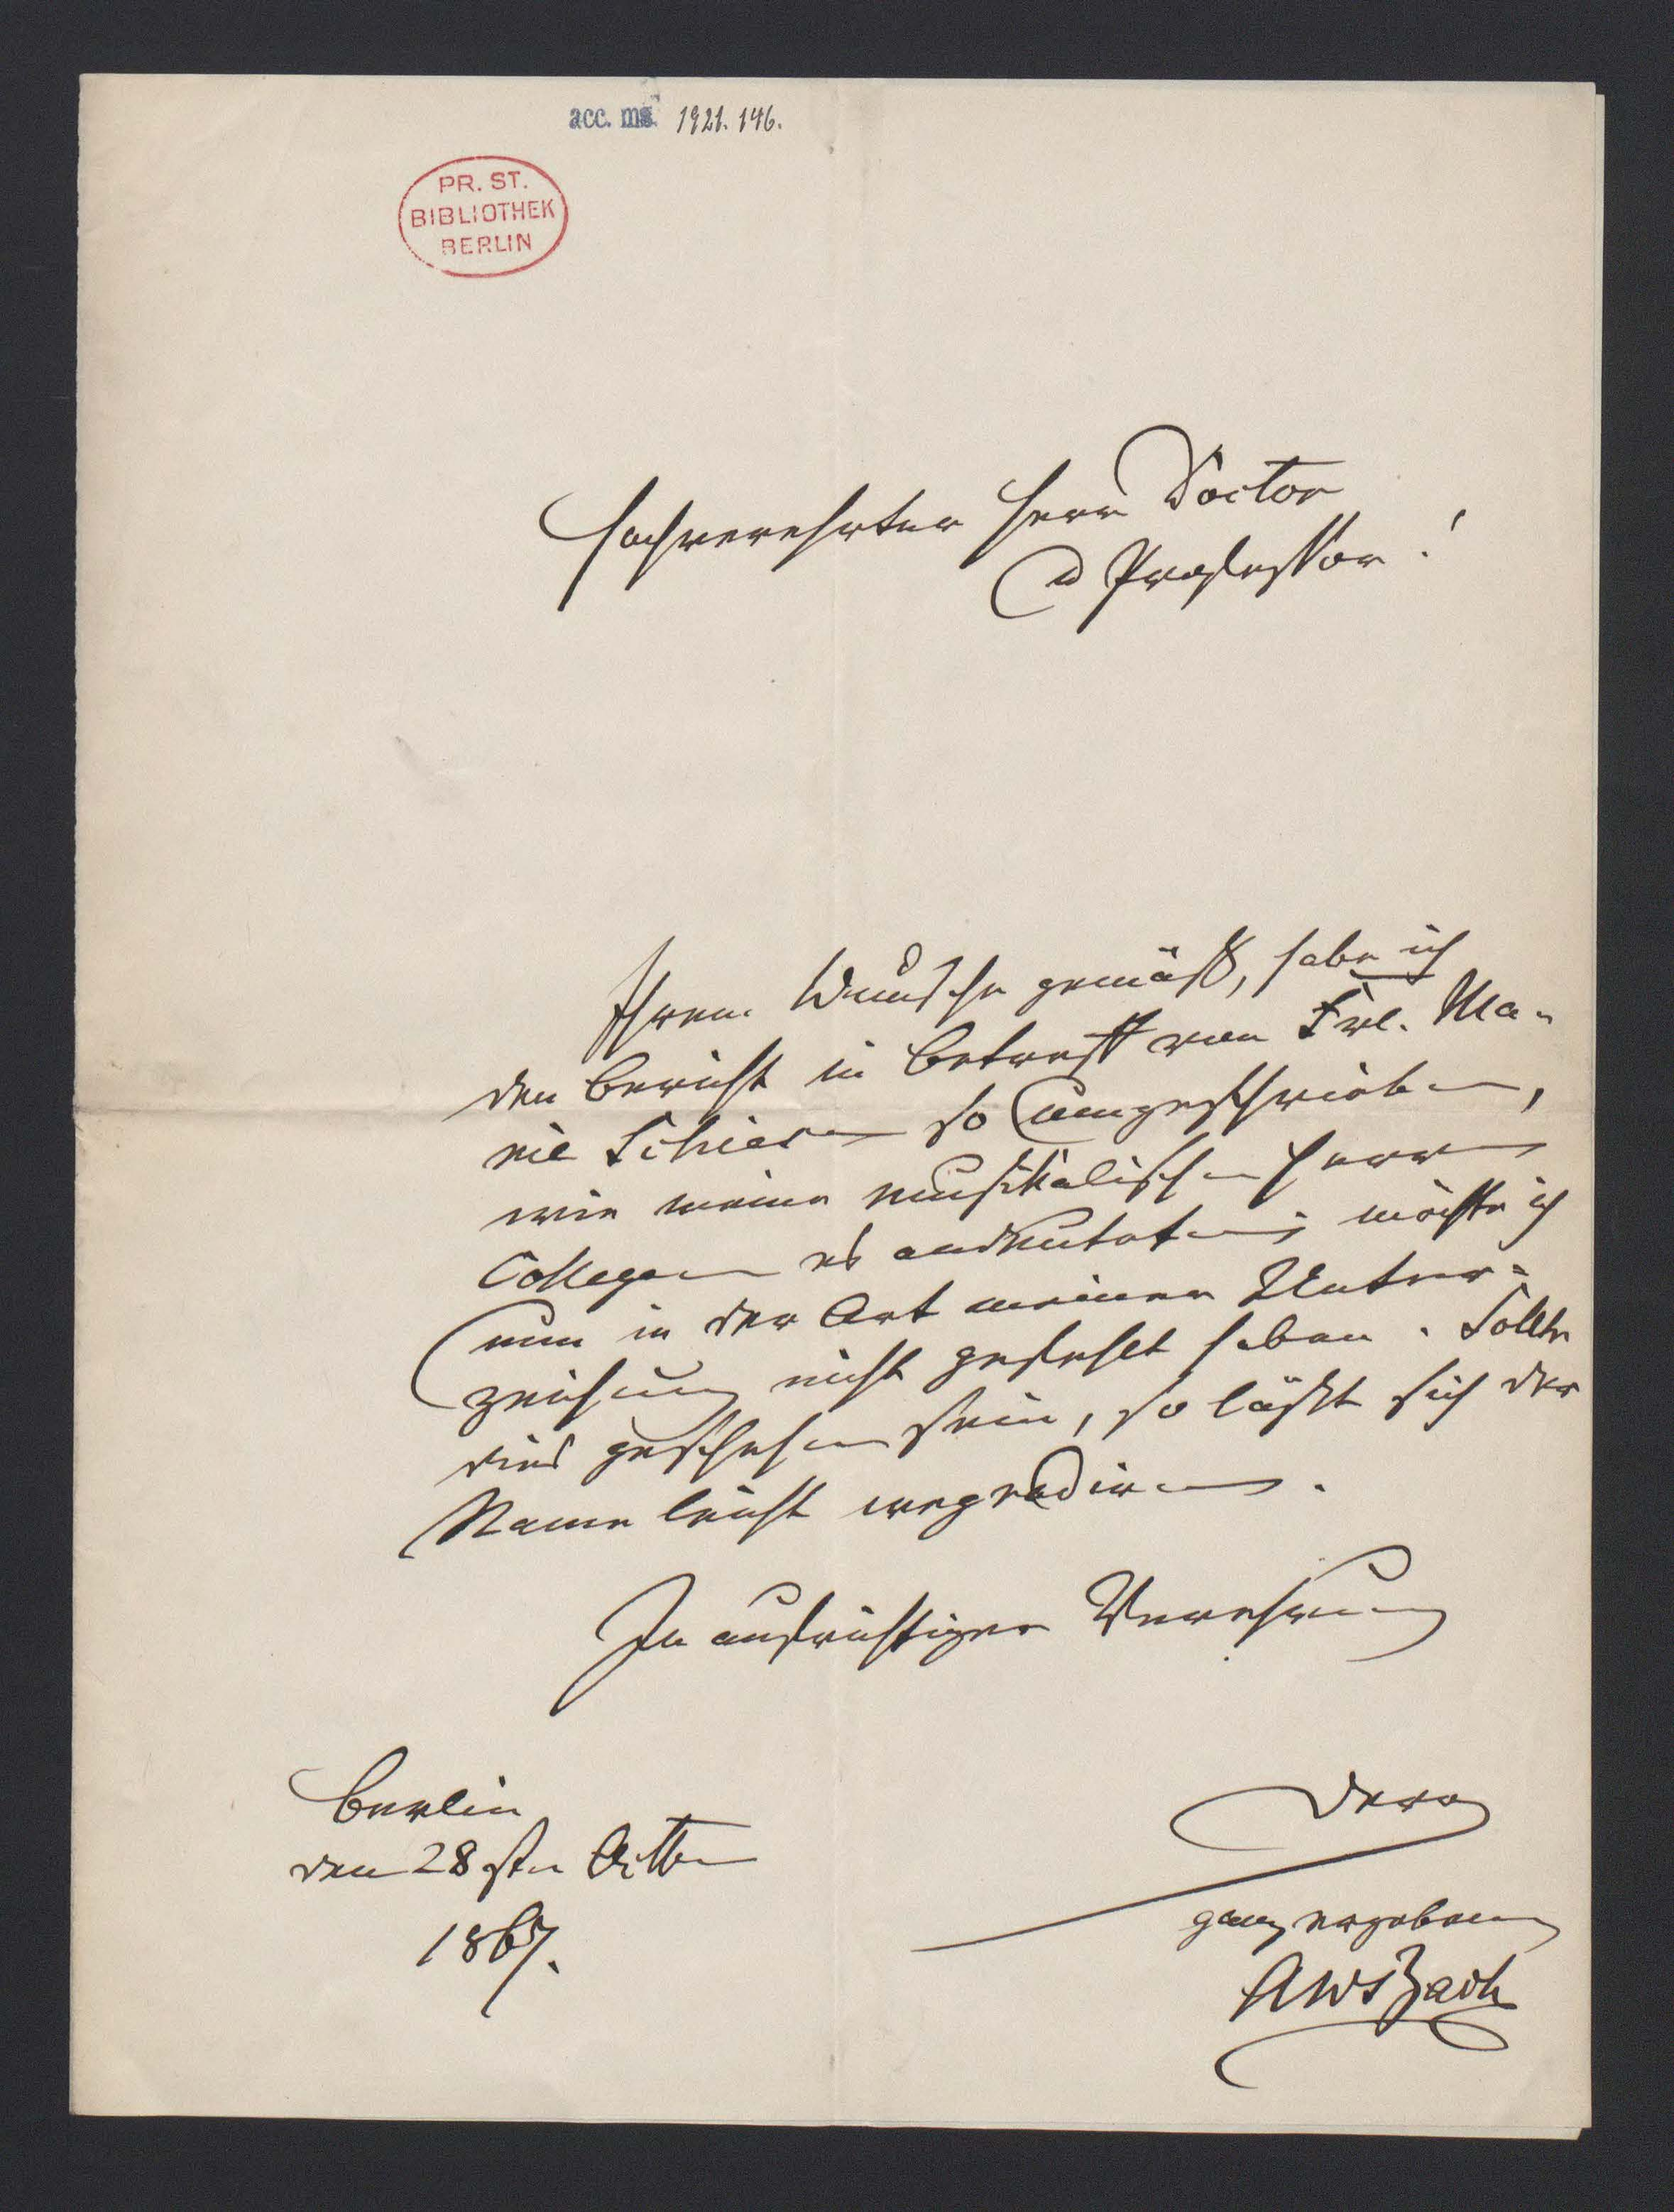 acc. ms. 1921. 146.
PR. ST.
BIBLIOTHEK
BERLIN
Hochverehrter Herr Doctor
u Professor!
Ihrem Wunsche gemäß, habe ich
den Bericht in Betreff von Frl. Ma-
rie so umgeschrieben,
wie meine musikalischen Herren
Collegen es andeuteten; möchte ich
nun in der Art meiner Unter-
zeichnung nicht gefehlt haben. Sollte
dies geschehen sein, so läßt sich der
Name leicht wegradiren.
In aufrichtiger Verehrung
Berlin
den 28sten Octbr
1867.
Dero
ganz ergebener
AWBach